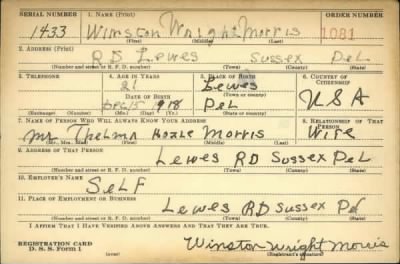 SERIAL NUMBER 1. NAME (Print) ORDER NUMBER
1433 Winston Wright Morris 1081
(First) (Middle) (Last)
2. ADDRESS (Print)
RD Lewes Sussex Del
(Number and street or R. F. D. number) (Town) (County) (State)
3. TELEPHONE 4. AGE IN YEARS 5. PLACE OF BIRTH 6. COUNTRY OF CITIZENSHIP
21 Lewes
(Town or county)
DATE OF BIRTH
Dec 15 1918 Del USA
(Exchange) (Number) (Mo.) (Day) (Yr.) (State or country)
7. NAME OF PERSON WHO WILL ALWAYS KNOW YOUR ADDRESS 8. RELATIONSHIP OF THAT PERSON
Thelma Morris Wife
(Mr., Mrs., Miss) (First) (Middle) (Last)
9. ADDRESS OF THAT PERSON
Lewes RD Sussex Del
(Number and street or R. F. D. number) (Town) (County) (State)
10. EMPLOYER'S NAME
Self
11. PLACE OF EMPLOYMENT OR BUSINESS
Lewes RD Sussex Del
(Number and street or R. F. D. number) (Town) (County) (State)
I AFFIRM THAT I HAVE VERIFIED ABOVE ANSWERS AND THAT THEY ARE TRUE.
REGISTRATION CARD
D. S. S. Form 1 Winston Wright Morris
(Registrant's signature)